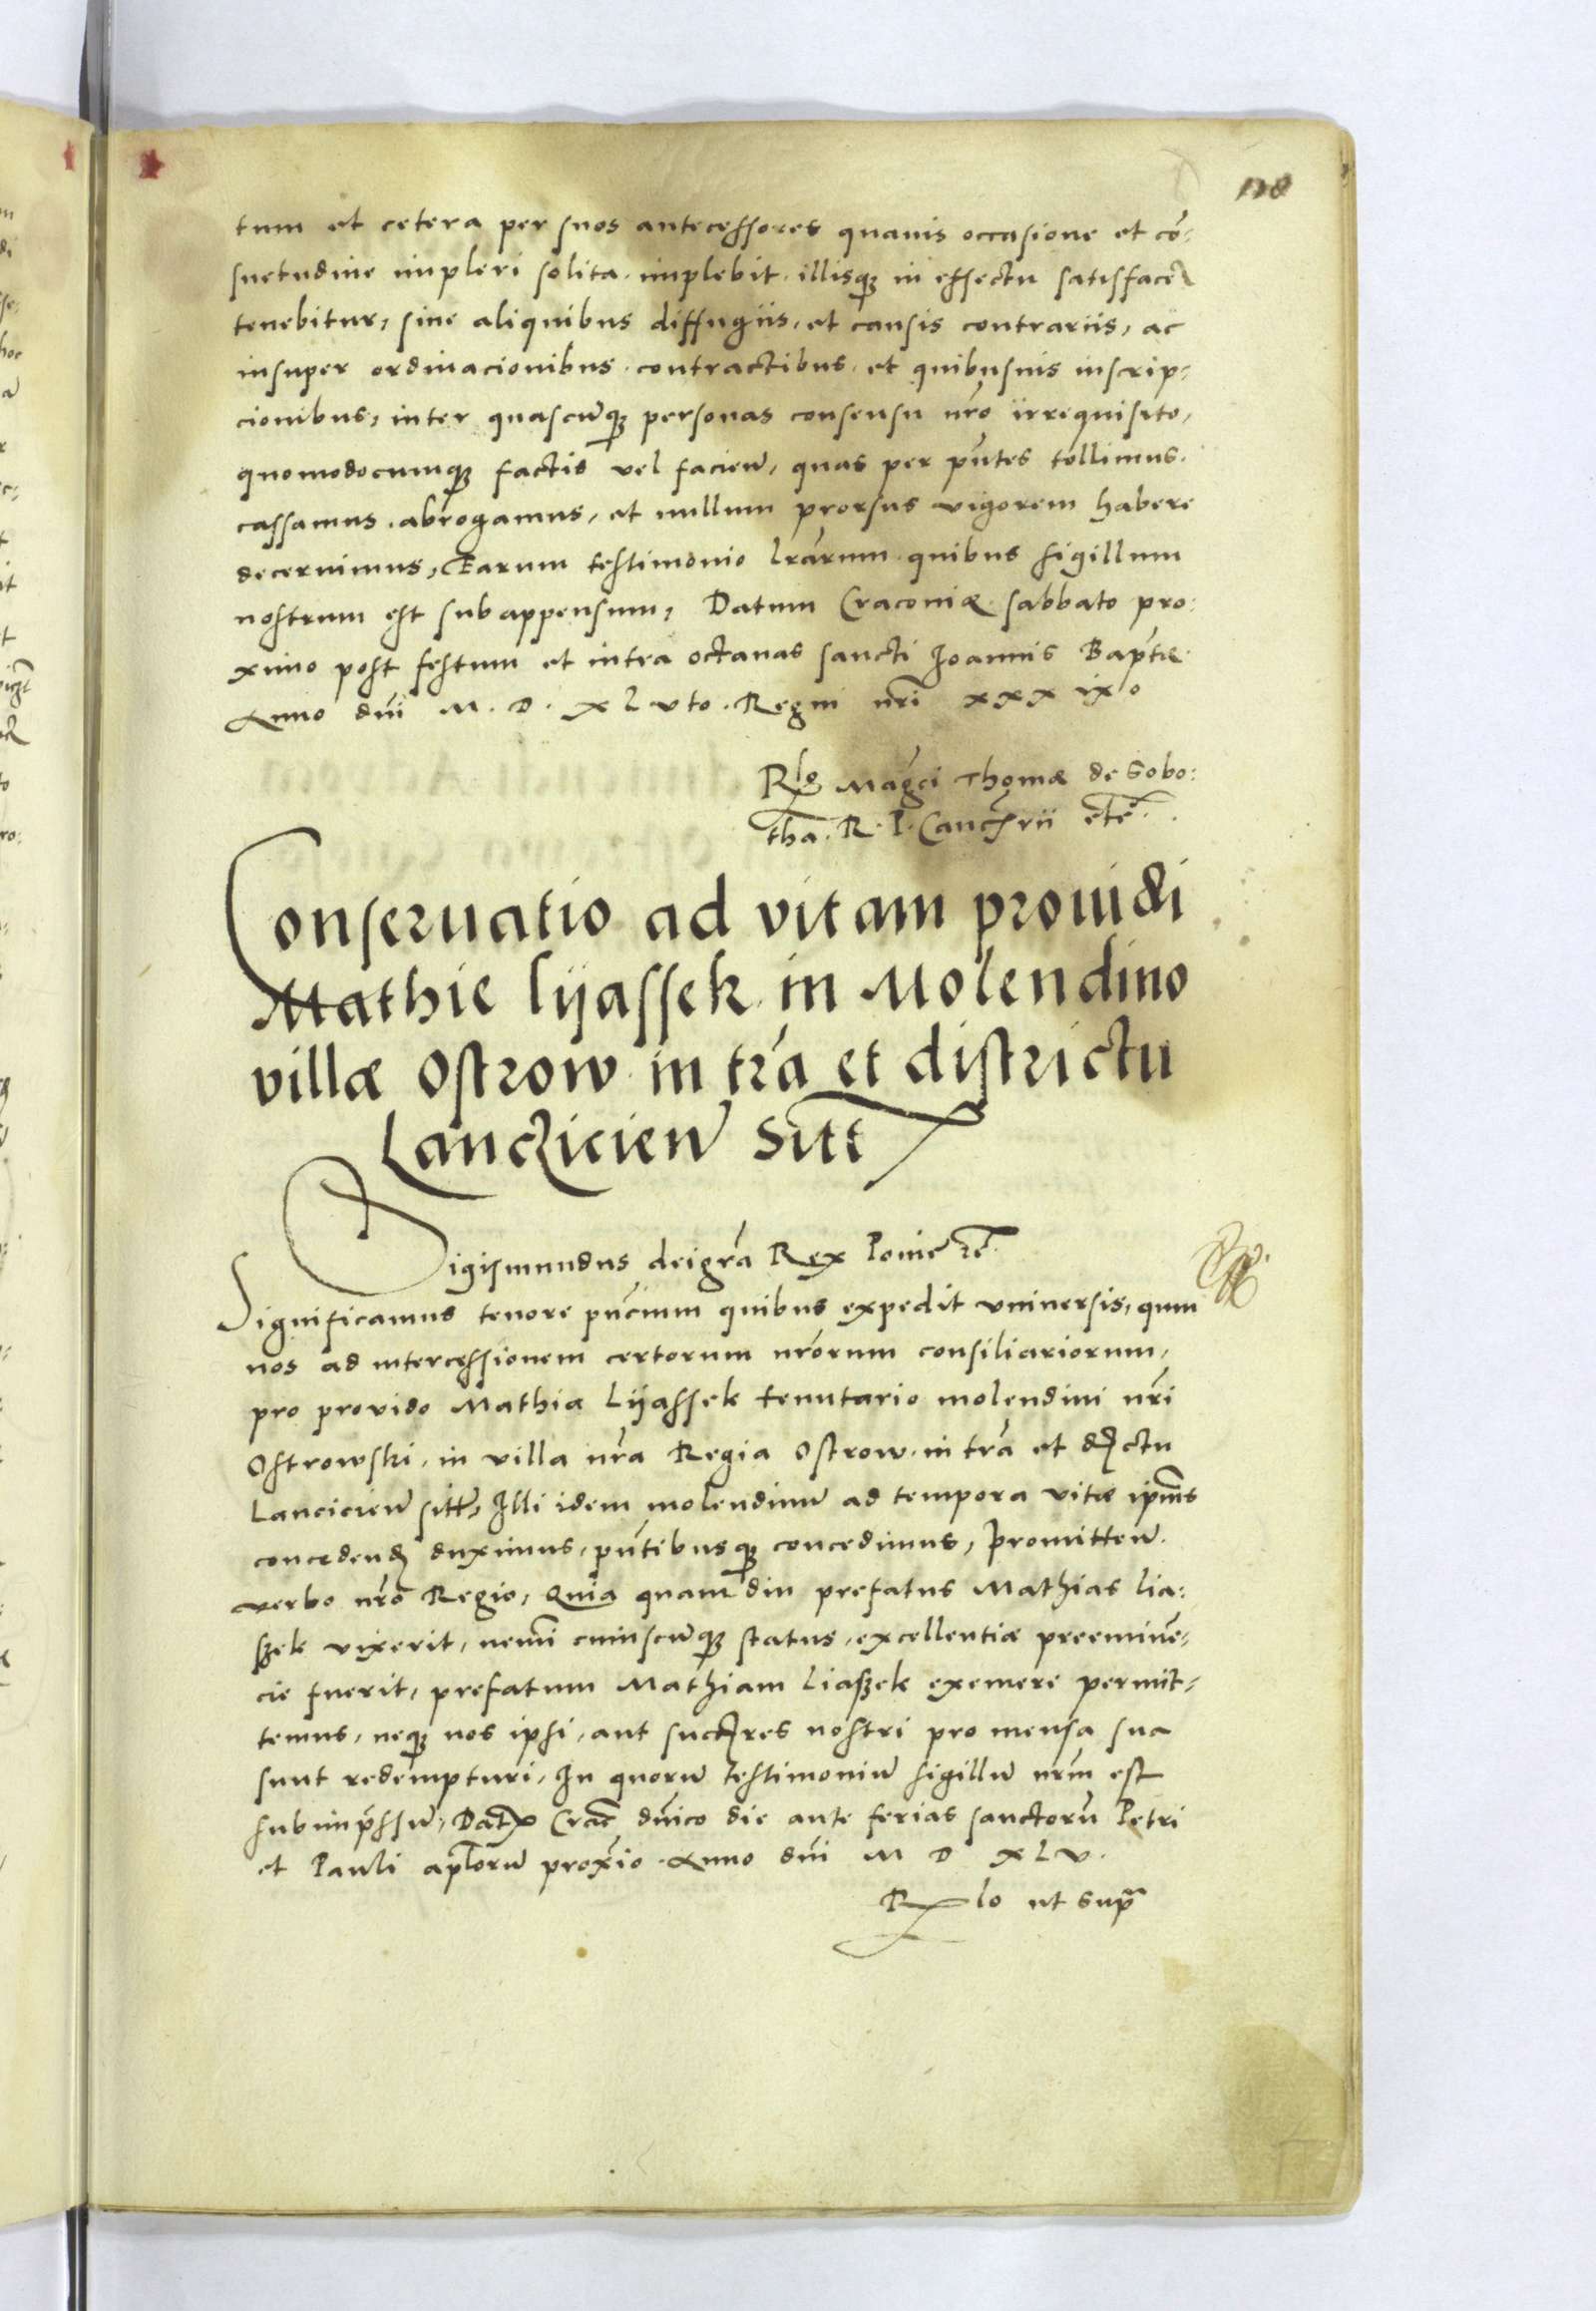 118
tum et cetera per suos antecessores quauis occasione et cō:
suetudine impleri solita. implebit. illisqꝫ in effectu satisfaceꝛ
tenebitur, sine aliquibus diffugiis, et causis contrariis, ac
insuper ordinacionibus. contractibus. et quibusuis inscrip:
cionibus, inter quascūqꝫ personas consensu nr̄o irrequisito,
quomodocunqꝫ factis vel facien̄, quas per pn̄tes tollimus.
cassamus. abrogamus, et nullum prorsus vigorem habere
decernimus, Earum testimonio lr̄arum quibus sigillum
nostrum est subappensum, Datum Cracoviæ sabbato pro:
ximo post festum et intra octauas sancti Joannis Bap̄tæ.
Anno dn̄i M. D. XL vto. Regni nr̄i xxx ixo
Rlo Mag̃ci Thomæ de Sobo:
tha. R. P. Canc̃rii etc̄.
Conseruatio ad vitam prouidi
Mathie lijassek in Molendino
villæ Ostrow in tr̄a et districtu
Lancziciēn̄ sitt
Sigismundus dei gr̄a Rex Poloniæ ꝛc̄.
Significamus tenore pn̄cium quibus expedit vniuersis, qum
nos ad intercessionem certorum nr̄orum consiliariorum,
pro provido Mathia Lijassek tenutario molendini nr̄i
Ostrowski, in villa nr̄a Regia Ostrow in tr̄a et dꝫctu
Lancicien̄ sitt̄, Illi idem molendinū ad tempora vitæ ip̄ius
concedendꝫ duximus, pn̄tibusqꝫ concedimus, Promitten̄.
verbo nr̄o Regio, Quia quamdiu prefatus Mathias lia:
szek vixerit, nemī cuiuscūqꝫ status, excellentiæ preeminē:
cie fuerit, prefatum Mathiam Liaszek exemere permit:
temus, neqꝫ nos ipsi, aut succ̃res nostri pro mensa sua
sunt redempturi, In quorū testimoniū sigillū nr̄m est
subimp̄ssū, Dat̃ Crac̄ dn̄ico die ante ferias sanctorū Petri
et Pauli ap̄lorū prox̄io. Anno dn̄i M D XLV.
Rlo ut supra